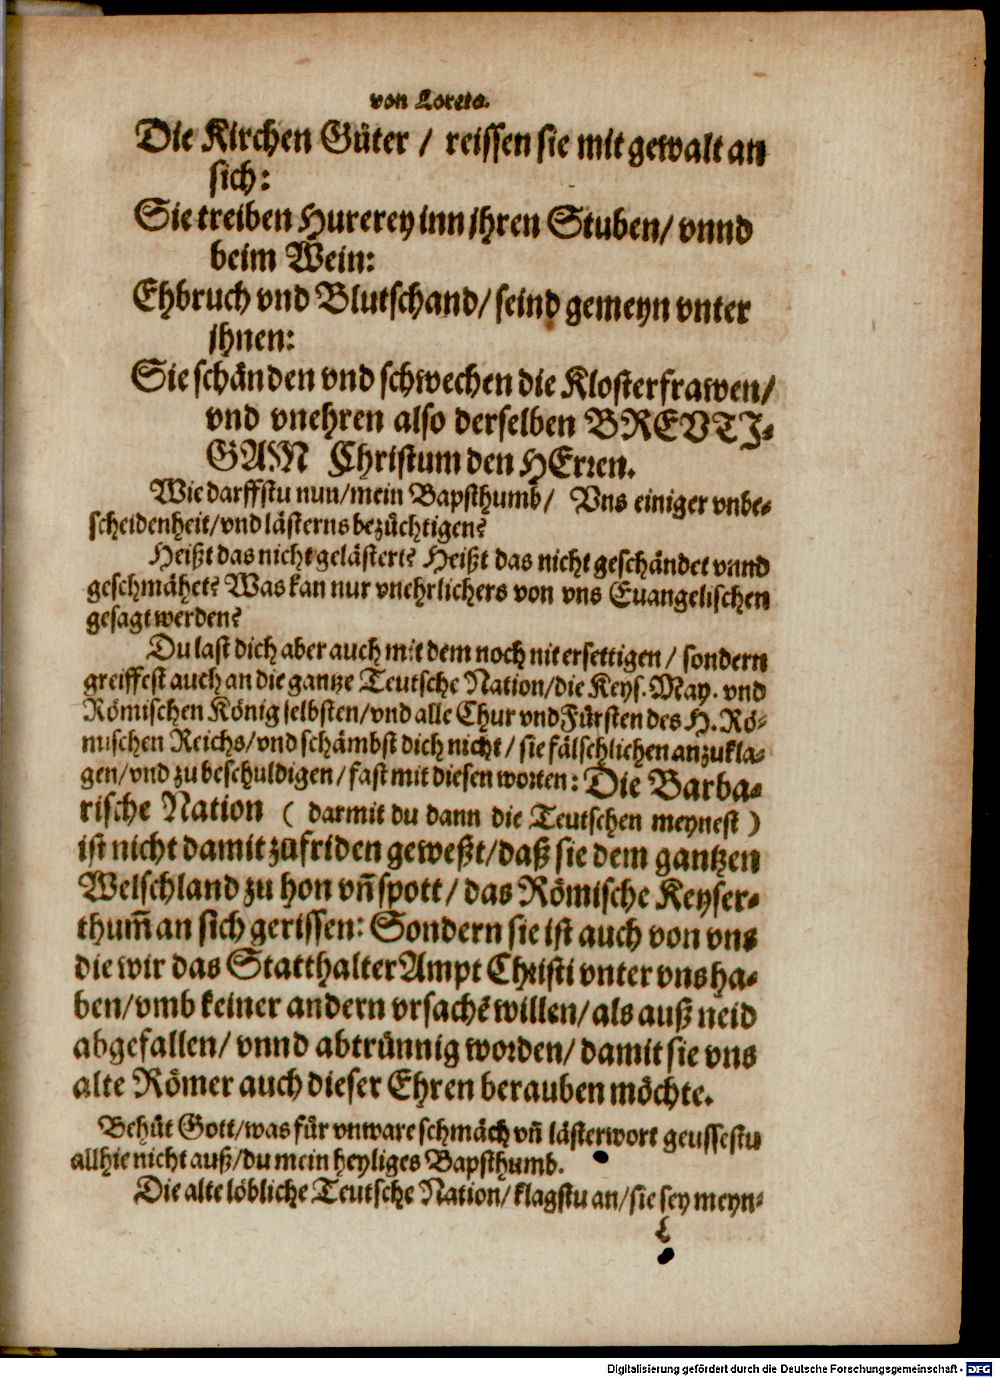 von Loreto.
Die Kirchen Güter / reissen sie mit gewalt an
sich:
Sie treiben Hurerey inn jhren Stuben/ vnnd
beim Wein:
Ehbruch vnd Blutschand/ seind gemeyn vnter
jhnen:
Sie schänden vnd schwechen die Klosterfrawen/
vnd vnehren also derselben BREVTI-
GAM Christum den HErren.
Wie darffstu nun/mein Bapsthumb/ Vns einiger vnbe-
scheidenheit/vnd lästerns bezüchtigen?
Heißt das nicht gelästert? Heißt das nicht geschändet vnnd
geschmähet? Was kan nur vnehrlichers von vns Euangelischen
gesagt werden?
Du last dich aber auch mit dem noch nit ersettigen/ sondern
greiffest auch an die gantze Teutsche Nation/die Keys. May. vnd
Römischen König selbsten/vnd alle Chur vnd Fürsten des H. Rö-
mischen Reichs/vnd schämbst dich nicht/ sie fälschlichen anzukla-
gen/vnd zu beschuldigen/ fast mit diesen worten: Die Barba-
rische Nation ( darmit du dann die Teutschen meynest )
ist nicht damit zufriden geweßt/daß sie dem gantzen
Welschland zu hon vñ spott/ das Römische Keyser-
thum̃ an sich gerissen: Sondern sie ist auch von vns
die wir das Statthalter Ampt Christi vnter vns ha-
ben/vmb keiner andern vrsachẽ willen/ als auß neid
abgefallen/ vnnd abtrünnig worden/ damit sie vns
alte Römer auch dieser Ehren berauben möchte.
Behüt Gott/was für vnware schmäch vñ lästerwort geussestu
allhie nicht auß/du mein heyliges Bapsthumb.
Die alte löbliche Teutsche Nation/ klagstu an/ sie sey meyn-
Digitalisierung gefördert durch die Deutsche Forschungsgemeinschaft - DFG